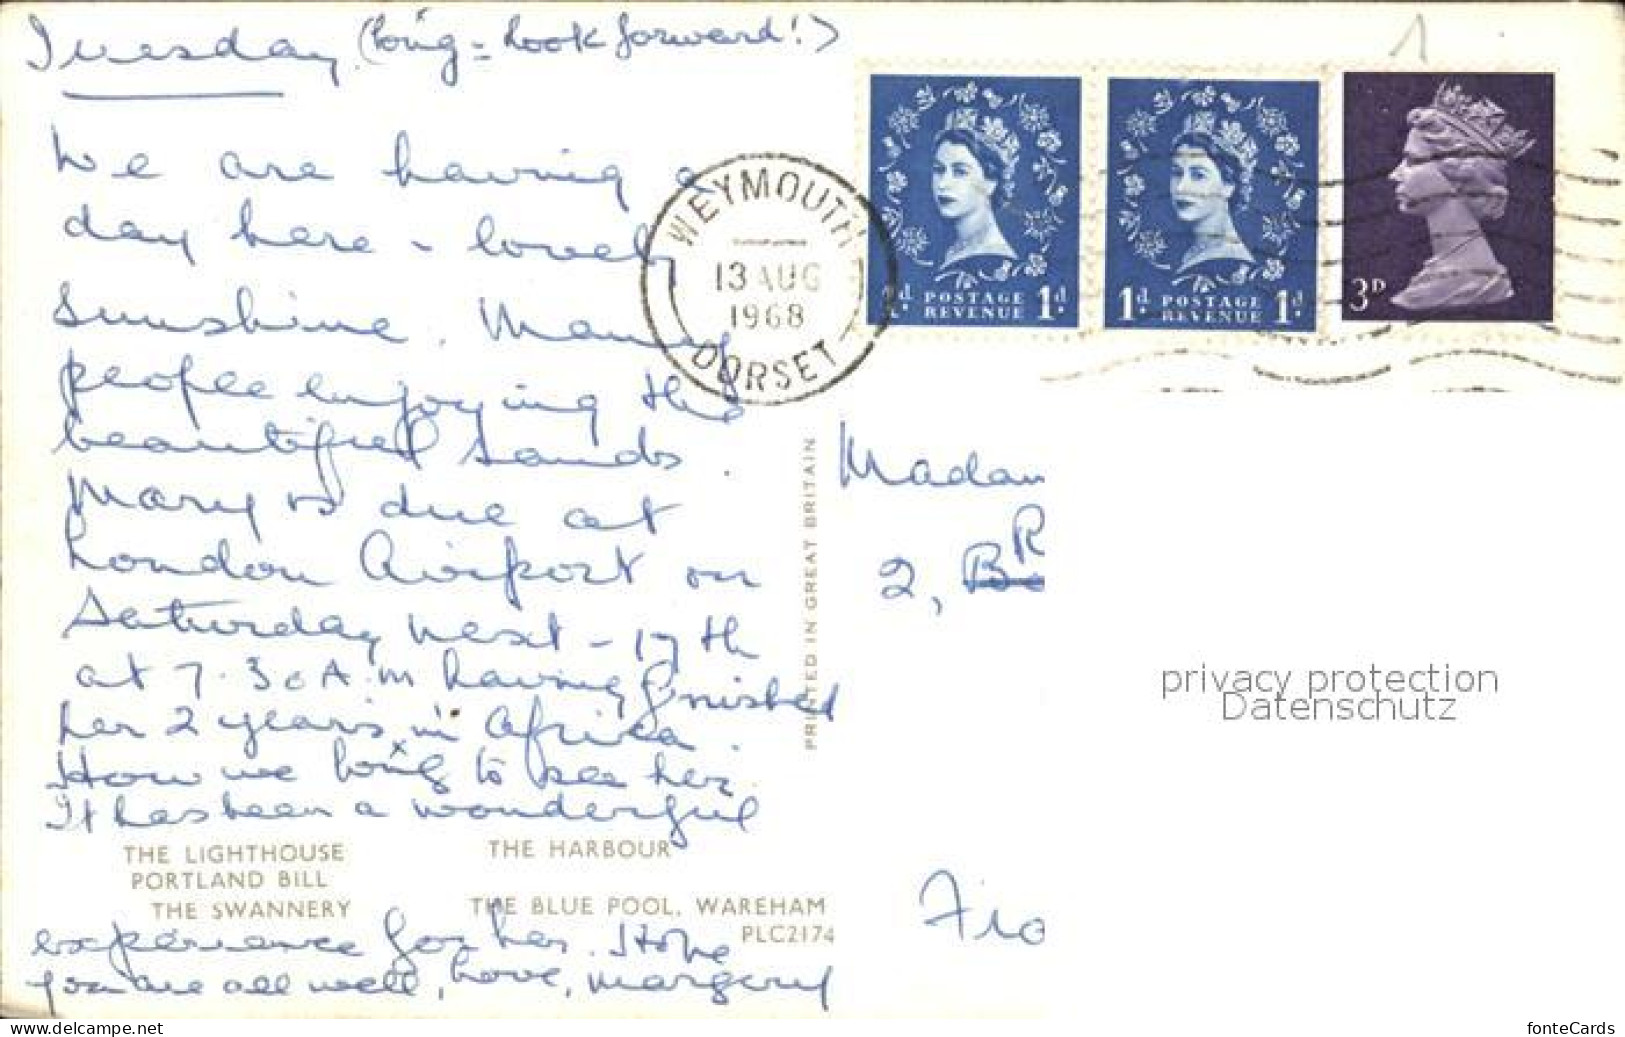 Tuesday (long = look forward!)
1
We are having a
day here - lovely
sunshine. Many
people enjoying the
beautiful sands.
Mary is due at
London Airport on
Saturday next - 17th
at 7.30 A.m having finished
her 2 years in Africa.
How we long x to see her.
It has been a wonderful
THE LIGHTHOUSE
PORTLAND BILL
THE SWANNERY
THE HARBOUR
THE BLUE POOL, WAREHAM
PLC2174
experience for her. Hope
you are all well, Love, Margery
PRINTED IN GREAT BRITAIN
WEYMOUTH
13 AUG
1968
DORSET
1d. POSTAGE REVENUE 1d.
1d. POSTAGE REVENUE 1d.
3D
Madam
2,
privacy protection
Datenschutz
www.delcampe.net
fonteCards